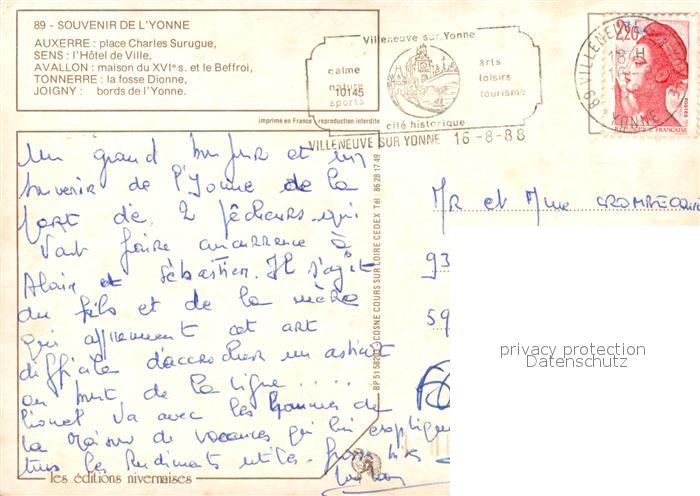 89 - SOUVENIR DE L'YONNE
AUXERRE : place Charles Surugue,
SENS : l'Hôtel de Ville,
AVALLON : maison du XVIᵉ s. et le Beffroi,
TONNERRE : la fosse Dionne,
JOIGNY : bords de l'Yonne.
imprimé en France - reproduction interdite
Villeneuve sur Yonne
calme
nature
sports
10145
arts
loisirs
tourisme
cité historique
VILLENEUVE SUR YONNE 16-8-88
89 VILLENEUVE
YONNE
2,20
Un grand bonjour et un
souvenir de l'Yonne de la
part de 2 pêcheurs qui
vont faire concurrence à
Alain et Sébastien. Il s'agit
du fils et de la mère
qui apprennent cet art
difficile d'accrocher un asticot
au bout de la ligne.....
Lionel va avec les hommes de
la maison de vacances qui lui expliquent
tous les rudiments utiles. Gros bises
COSNE COURS SUR LOIRE CEDEX Tél : 86 28 17 49
Mr et Mme
93
59
privacy protection
Datenschutz
les éditions nivernaises